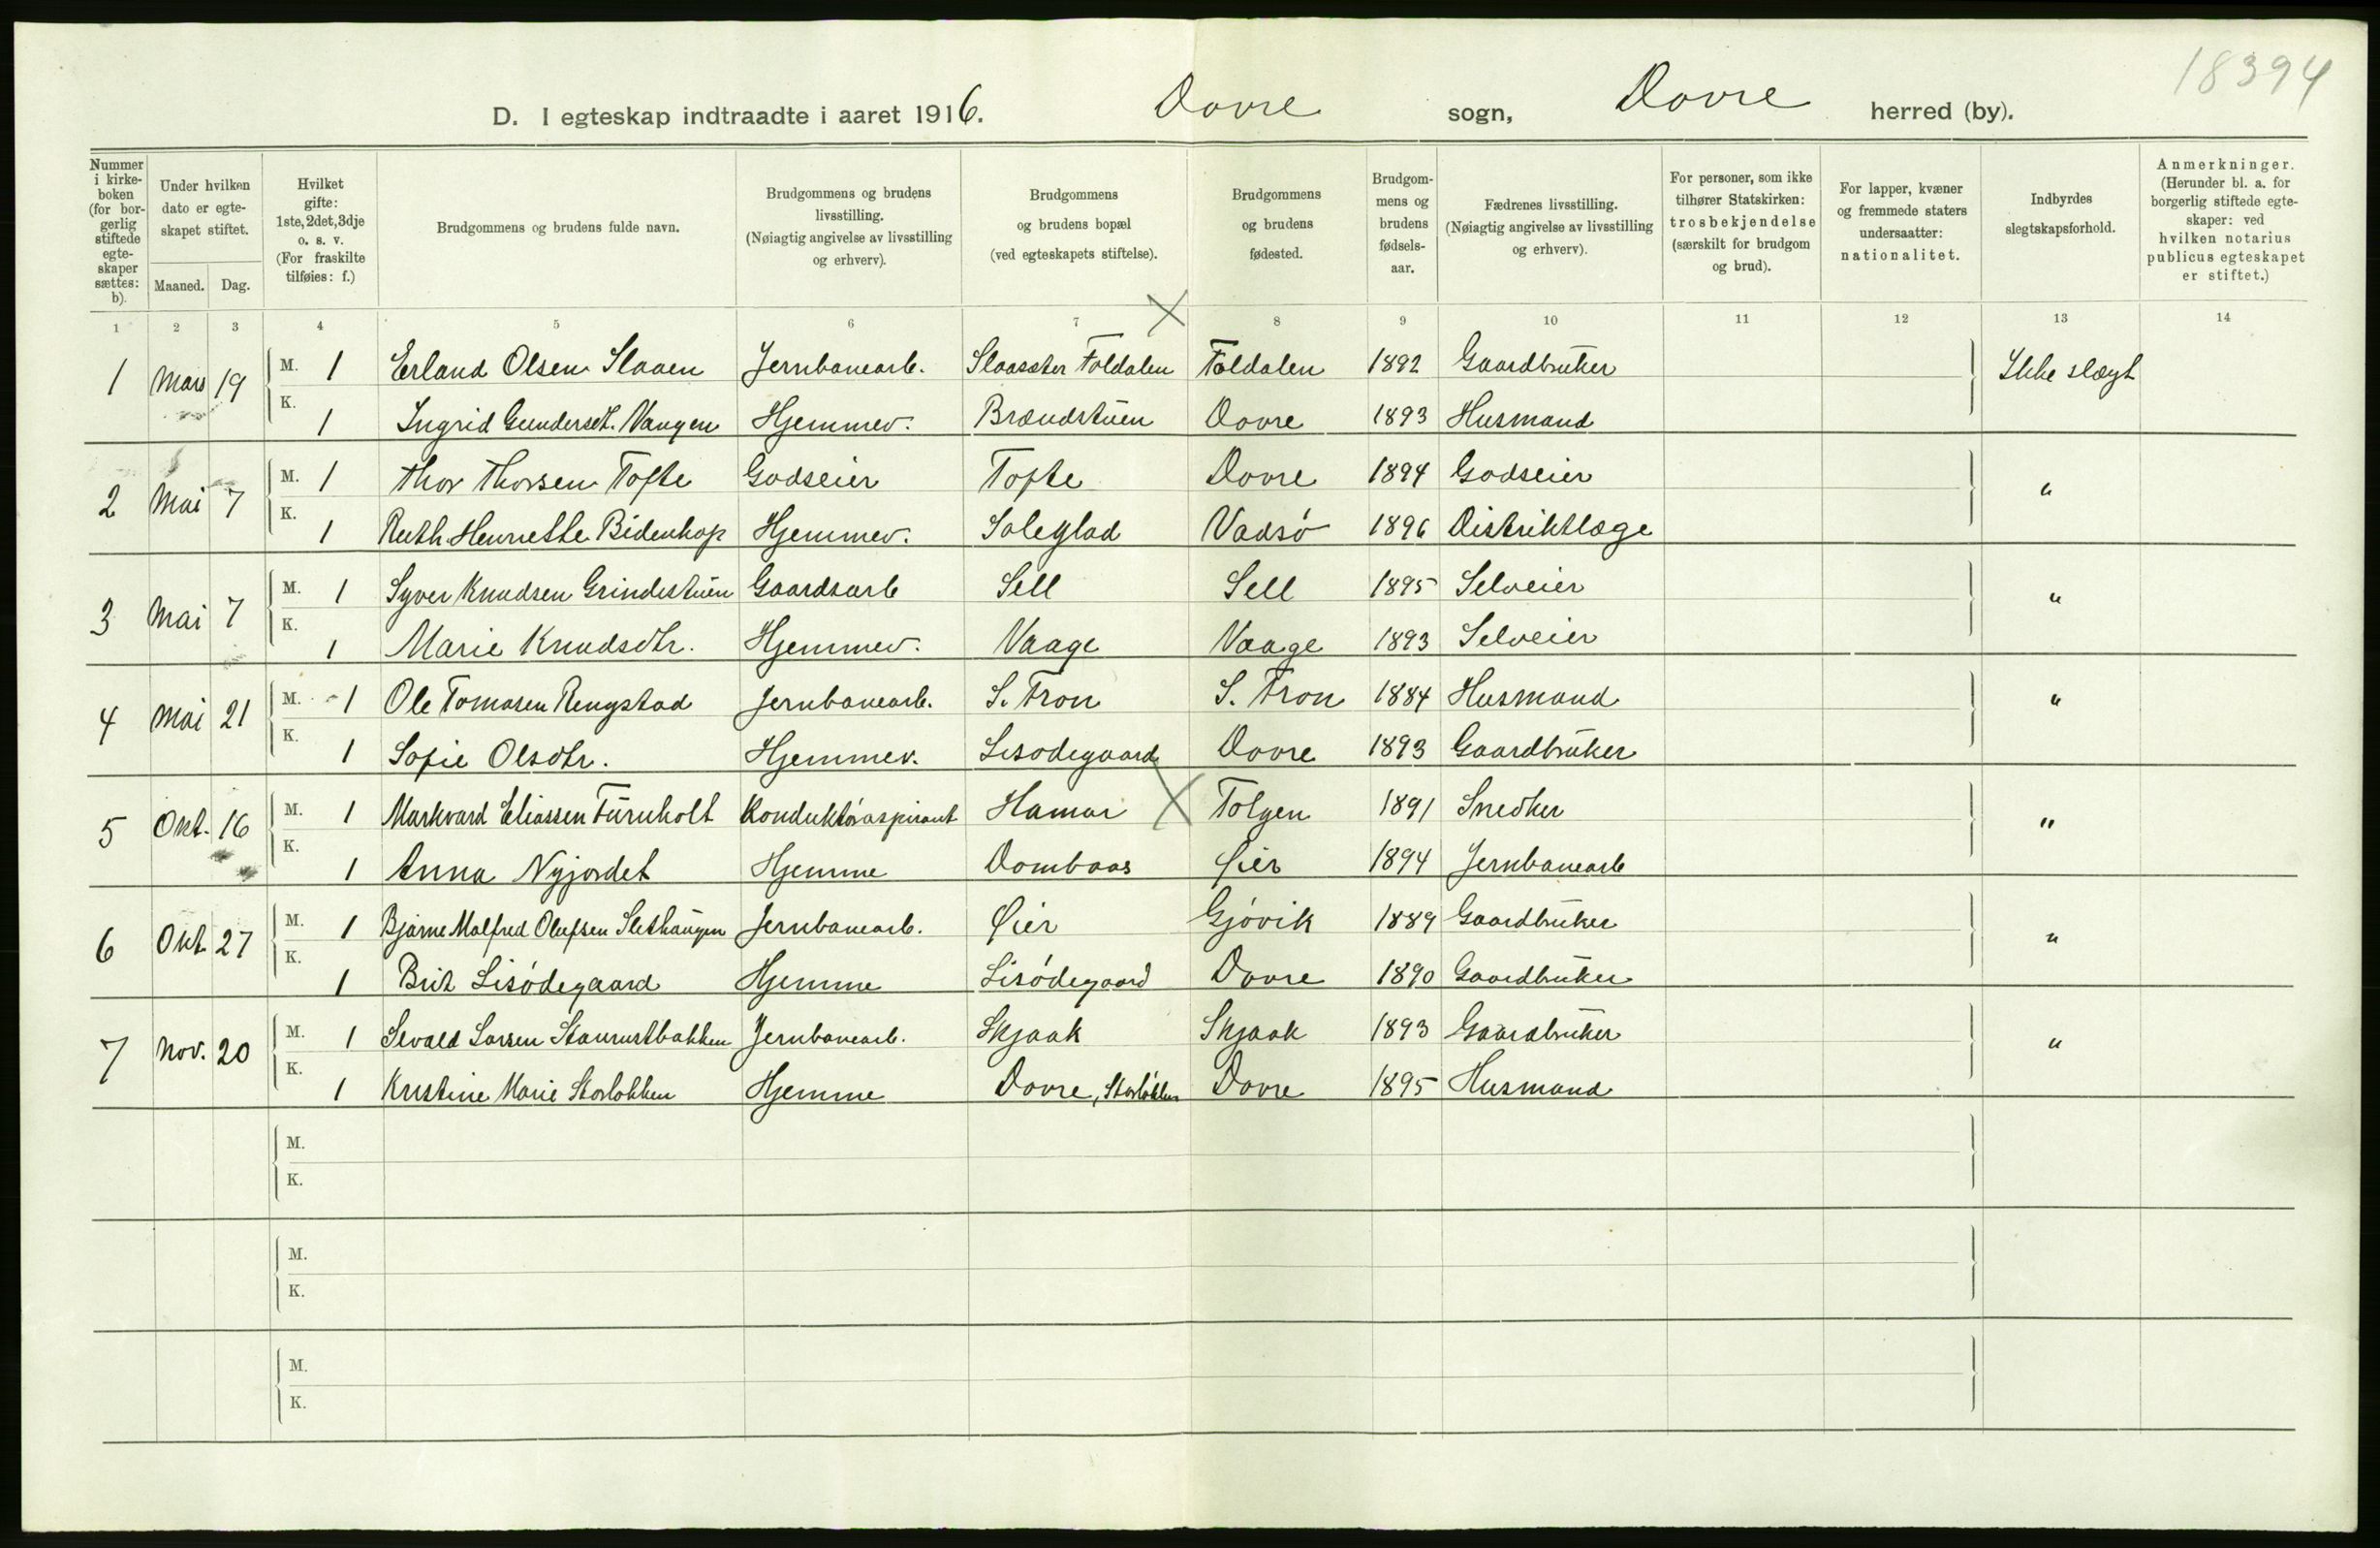 18394
D. I egteskap indtraadte i aaret 1916. Dovre sogn, Dovre herred (by).
Nummer i kirkeboken (for borgerlig stiftede egteskaper sættes: b). Under hvilken dato er egteskapet stiftet. Maaned. Dag. Hvilket gifte: 1ste, 2det, 3dje o. s. v. (For fraskilte tilføies: f.) Brudgommens og brudens fulde navn. Brudgommens og brudens livsstilling. (Nøiagtig angivelse av livsstilling og erhverv). Brudgommens og brudens bopæl (ved egteskapets stiftelse). Brudgommens og brudens fødested. Brudgommens og brudens fødselsaar. Fædrenes livsstilling. (Nøiagtig angivelse av livsstilling og erhverv). For personer, som ikke tilhører Statskirken: trosbekjendelse (særskilt for brudgom og brud). For lapper, kvæner og fremmede staters undersaatter: nationalitet. Indbyrdes slegtskapsforhold. Anmerkninger. (Herunder bl. a. for borgerlig stiftede egteskaper: ved hvilken notarius publicus egteskapet er stiftet.)
1 2 3 4 5 6 7 8 9 10 11 12 13 14
1 Mars 19 M. 1 Erland Olsen Slaaen Jernbanearb. Slaasæter Foldalen Foldalen 1892 Gaardbruker Ikke slægt
K. 1 Ingrid Gundersdt. Vangen Hjemmev. Brændstuen Dovre 1893 Husmand
2 Mai 7 M. 1 Thor Thorsen Tofte Godseier Tofte Dovre 1894 Godseier "
K. 1 Ruth Henriette Bidenkap Hjemmev. Soleglad Vadsö 1896 Distriktlæge
3 Mai 7 M. 1 Syver Knudsen Grindestuen Gaardsarb Sell Sell 1895 Selveier "
K. 1 Marie Knudsdtr. Hjemmev. Vaage Vaage 1893 Selveier
4 Mai 21 M. 1 Ole Tomasen Rengstad Jernbanearb. S. Fron S. Fron 1884 Husmand "
K. 1 Sofie Olsdtr. Hjemmev. Lisødegaard Dovre 1893 Gaardbruker
5 Okt. 16 M. 1 Markvard Eliassen Furuholt Konduktöraspirant Hamar Tolgen 1891 Snedker "
K. 1 Anna Nyjordet Hjemme Dombaas Øier 1894 Jernbanearb
6 Okt. 27 M. 1 Bjarne Malfred Olufsen Slethaugen Jernbanearb. Øier Gjövik 1889 Gaardbruker "
K. 1 Brit Lisödegaard Hjemme Lisödegaard Dovre 1890 Gaardbruker
7 Nov. 20 M. 1 Sevald Larsen Staurustbakken Jernbanearb. Skjaak Skjaak 1893 Gaardbruker "
K. 1 Kristine Marie Storløkken Hjemme Dovre, Storløkken Dovre 1895 Husmand
M.
K.
M.
K.
M.
K.